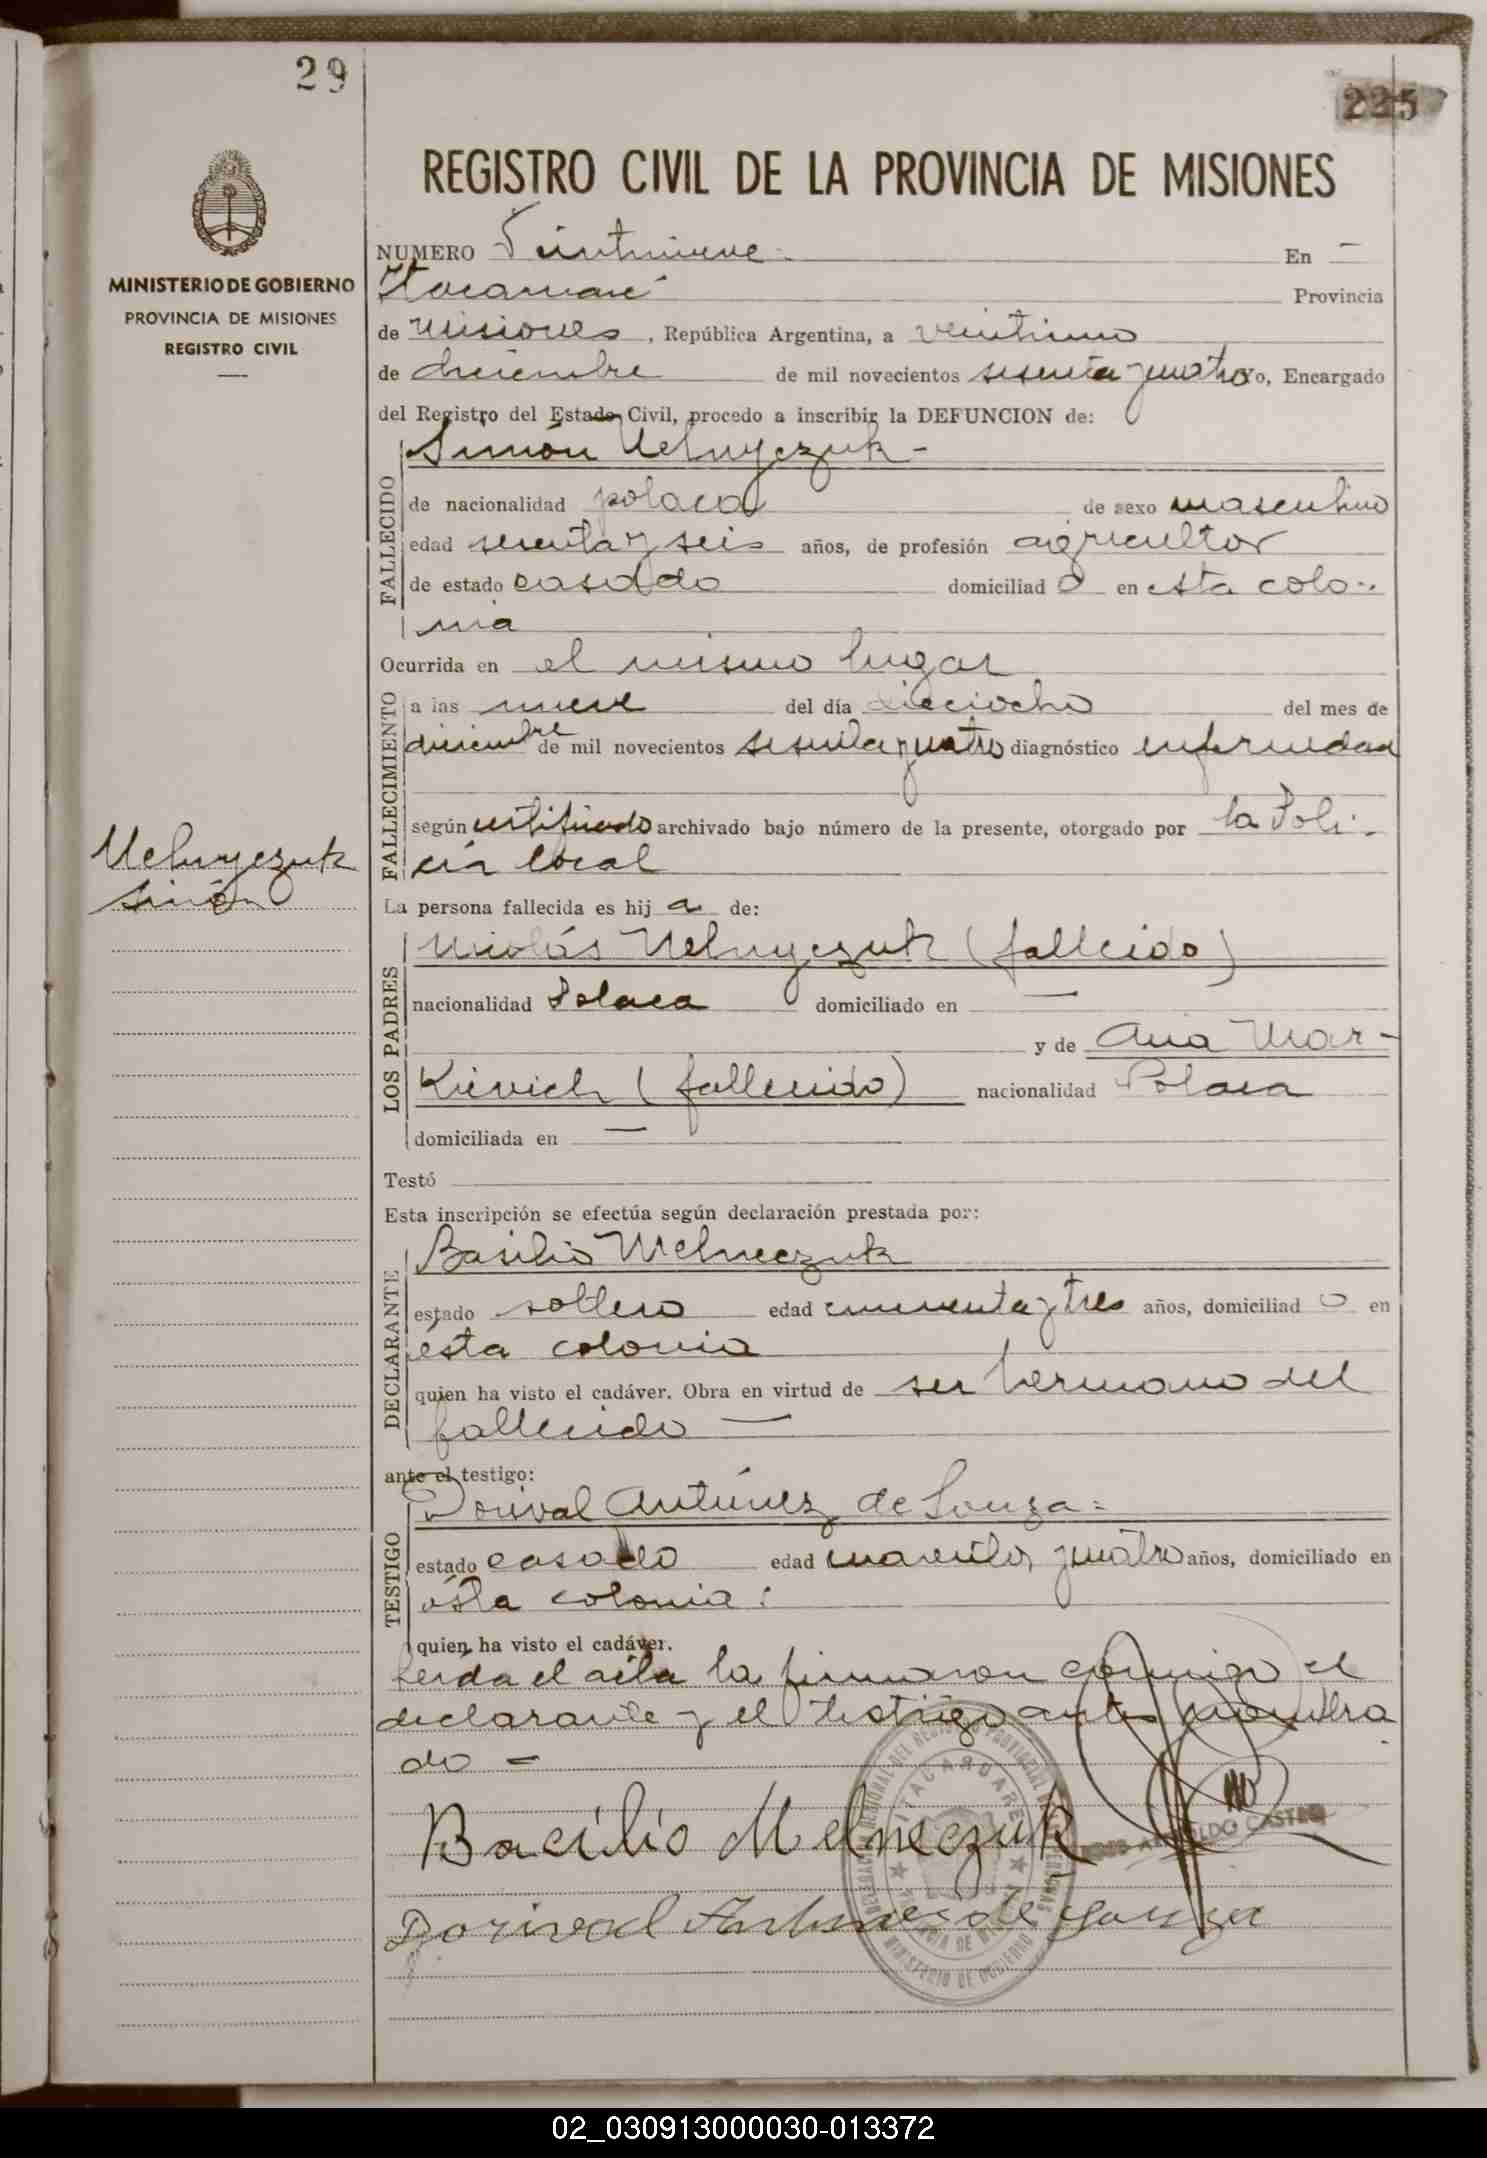 29
225
REGISTRO CIVIL DE LA PROVINCIA DE MISIONES
MINISTERIO DE GOBIERNO
PROVINCIA DE MISIONES
REGISTRO CIVIL
NUMERO Veintinueve En
Itacaruaré Provincia
de Misiones, República Argentina, a veintiuno
de diciembre de mil novecientos sesenta y cuatro Yo, Encargado
del Registro del Estado Civil, procedo a inscribir la DEFUNCION de:
Simón Melnyczuk
FALLECIDO
de nacionalidad polaca de sexo masculino
edad sesenta y seis años, de profesión agricultor
de estado casado domiciliad o en esta colo-
nia
Ocurrida en el mismo lugar
FALLECIMIENTO
a las nueve del día dieciocho del mes de
diciembre de mil novecientos sesenta y cuatro diagnóstico enfermedad
según certificado archivado bajo número de la presente, otorgado por la Poli-
cía local
Melnyczuk
Simón
La persona fallecida es hij a de:
LOS PADRES
Nicolás Melnyczuk (fallecido)
nacionalidad Polaca domiciliado en —
y de Ana Mar-
Kievich (fallecido) nacionalidad Polaca
domiciliada en —
Testó
Esta inscripción se efectúa según declaración prestada por:
DECLARANTE
Basilio Melneczuk
estado soltero edad cincuenta y tres años, domiciliad o en
ésta colonia
quien ha visto el cadáver. Obra en virtud de ser hermano del
fallecido —
ante el testigo:
TESTIGO
Dorival Antúnez de Souza
estado casado edad cuarenta y cuatro años, domiciliado en
ésta colonia
quien ha visto el cadáver.
Leída el acta la firmaron conmigo el
declarante y el testigo antes nombra
do =
Bacilio Melneczuk
Dorival Antunes de Souza
ITACARUARE
MINISTERIO DE GOBIERNO
CASTRO
02_030913000030-013372